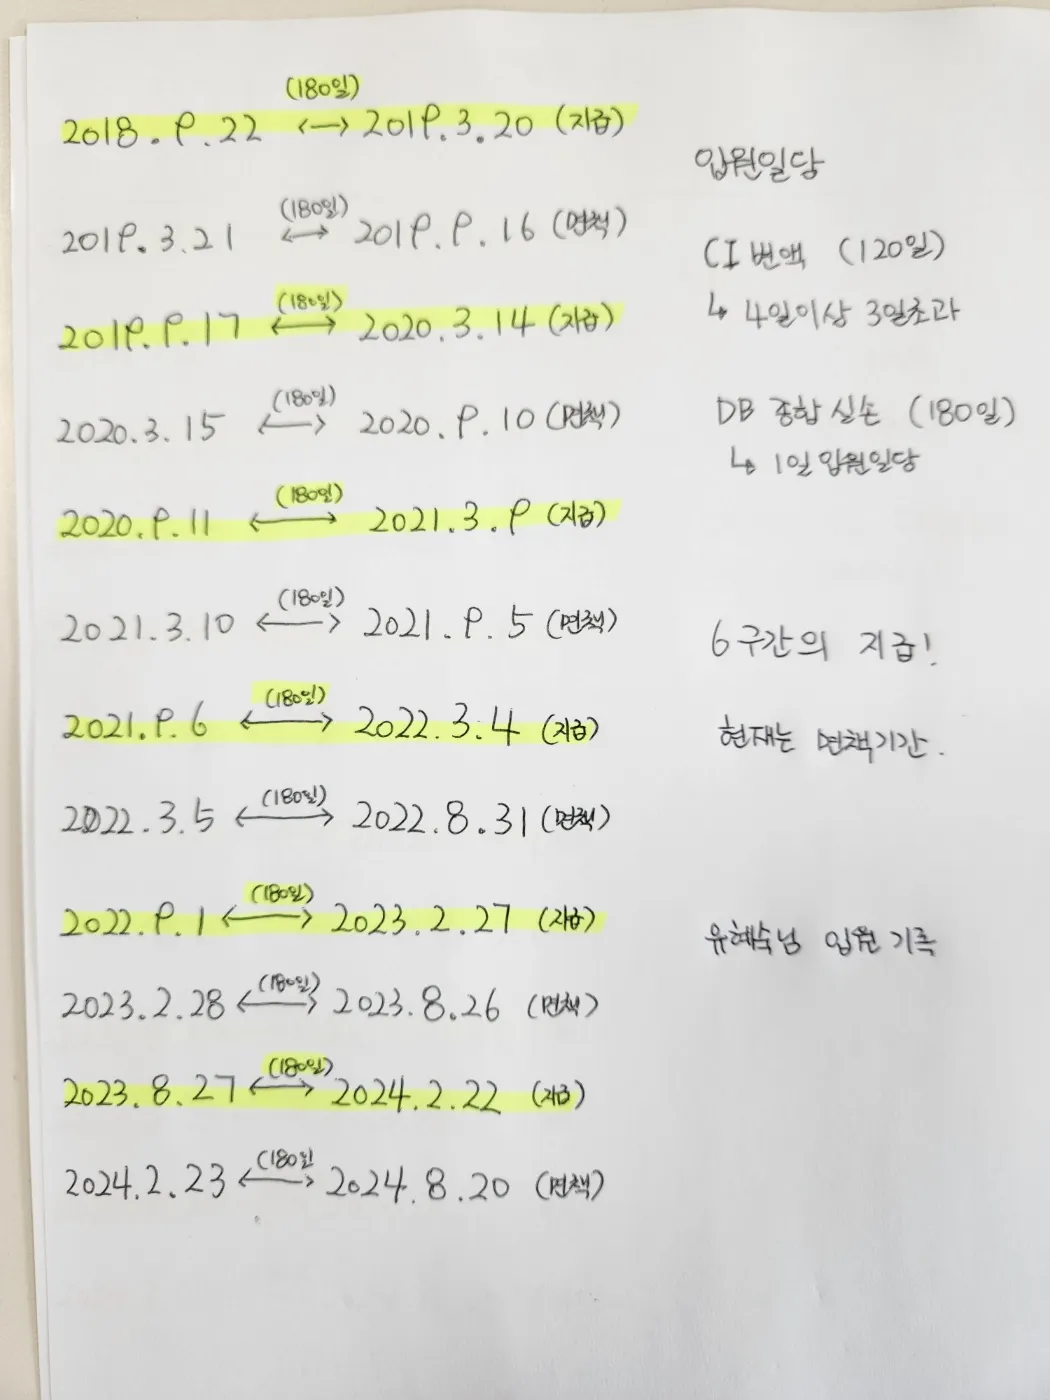 (180일)
2018.9.22 ↔ 2019.3.20 (지급)
(180일)
2019.3.21 ↔ 2019.9.16 (면책)
(180일)
2019.9.17 ↔ 2020.3.14 (지급)
(180일)
2020.3.15 ↔ 2020.9.10 (면책)
(180일)
2020.9.11 ↔ 2021.3.9 (지급)
(180일)
2021.3.10 ↔ 2021.9.5 (면책)
(180일)
2021.9.6 ↔ 2022.3.4 (지급)
(180일)
2022.3.5 ↔ 2022.8.31 (면책)
(180일)
2022.9.1 ↔ 2023.2.27 (지급)
(180일)
2023.2.28 ↔ 2023.8.26 (면책)
(180일)
2023.8.27 ↔ 2024.2.22 (지급)
(180일
2024.2.23 ↔ 2024.8.20 (면책)
입원일당
CI변액 (120일)
↳ 4일이상 3일초과
DB 종합실손 (180일)
↳ 1일 입원일당
6구간의 지급!
현재는 면책기간.
유혜숙님 입원 기록